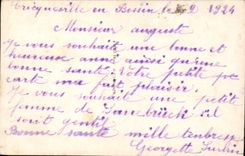 en Bessin le 2 1924
Monsieur auguste
Je vous souhaite une bonne et
heureuse anné ainsi qu'une
bonne santé. Votre petite
cart ma fait plaisir.
Je vous souhaite une petit
femme de
sont gentil
Bonne santé mille tendress
Georgette